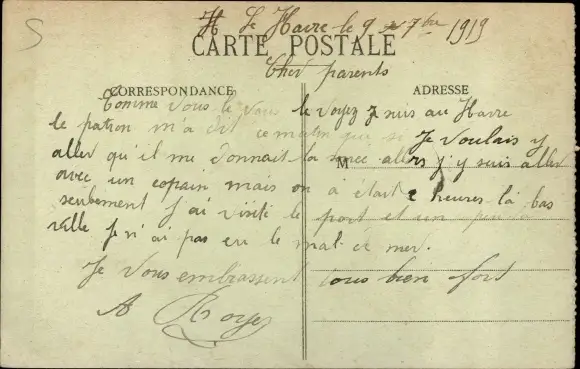 S
H Le Havre le 9 7bre 1919
CARTE POSTALE
Cher parents
CORRESPONDANCE
ADRESSE
Comme vous le vous le voyez je suis au Havre
le patron m'a dit ce matin que si Je voulais y
aller qu'il me donnait la allers j'y suis aller
M
avec un copain mais on a était 2 heures la bas
seulement j'ai visité le port et un peu la
ville Je n'ai pas eu le mal de mer.
Je vous embrassent tous bien fort
A Roye